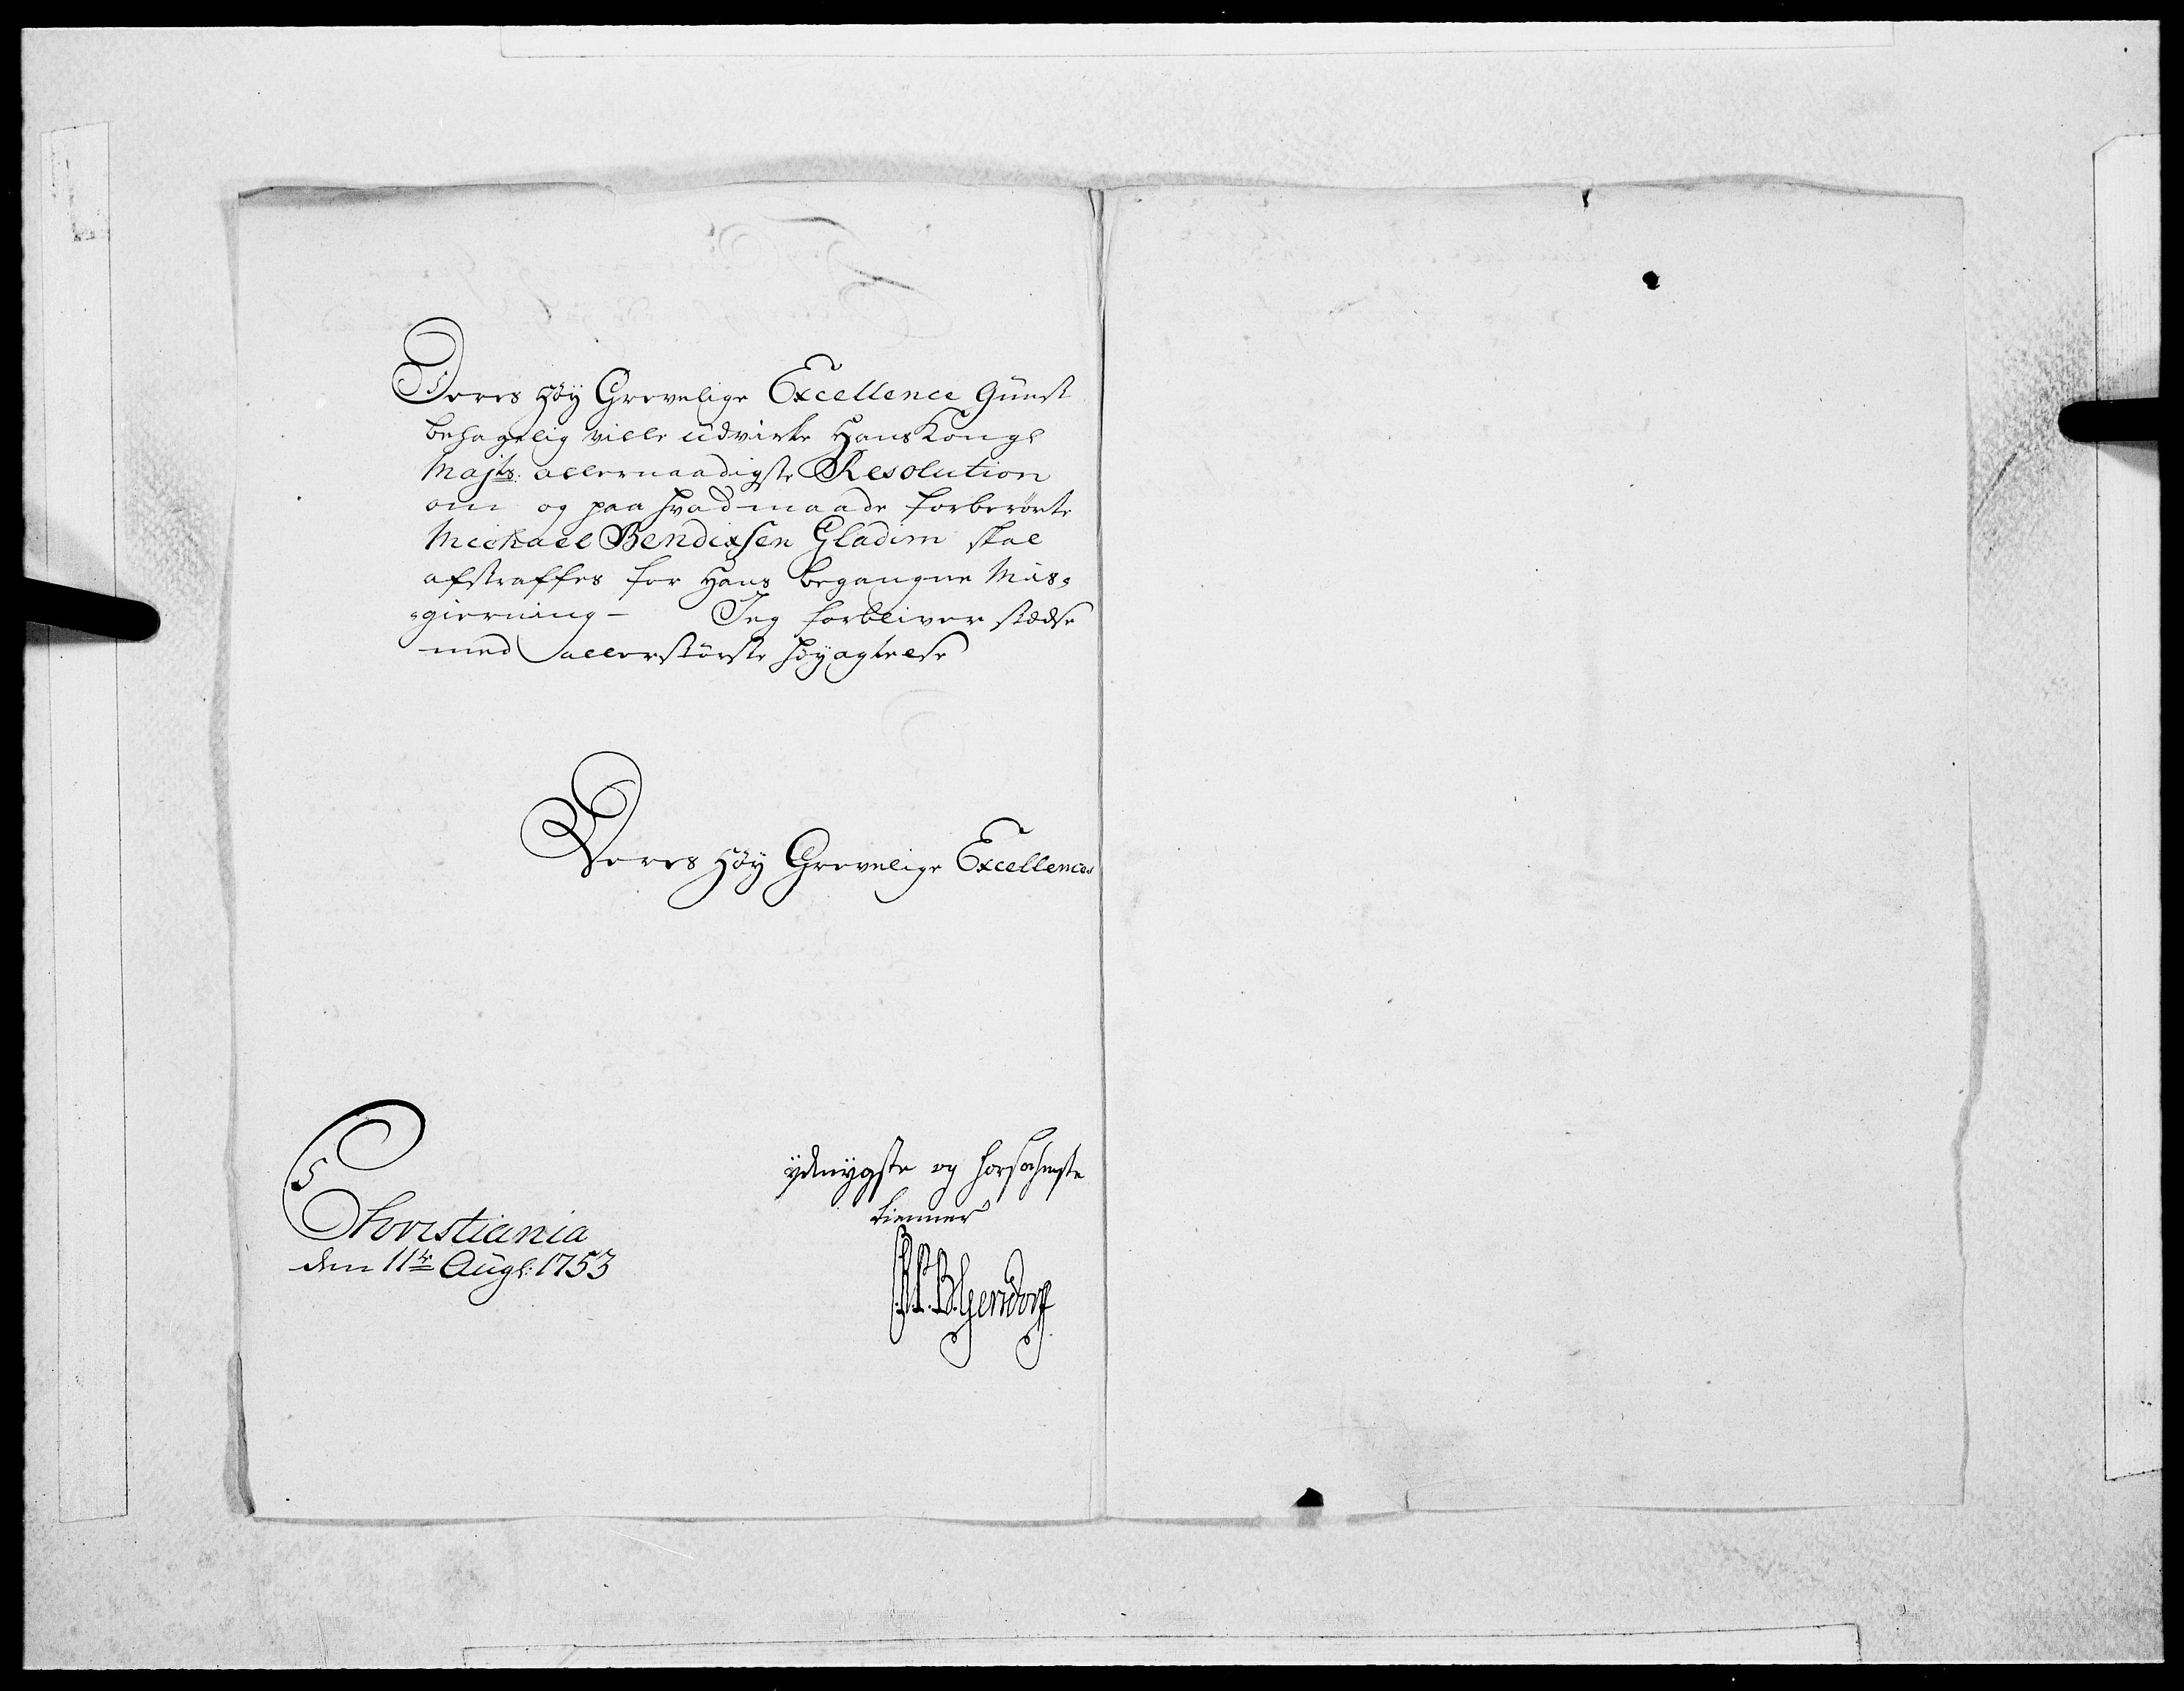 Deres Høy Grevelige Excellence Gunst
behagelig ville udvirke Hans Kongl
Majts: allernaadigste Resolution
om og paa hvad maade forberørte
Michael Bendixsen Gladim skal
afstraffes for Hans begangne Mis-
-gierning - Jeg forbliver stædse
med allerstørste høyagtelse
Deres Høy Grevelige Excellences
ydmygste og forsagneste
tienner
Christiania
den 11te Augt: 1753
Gersdorff